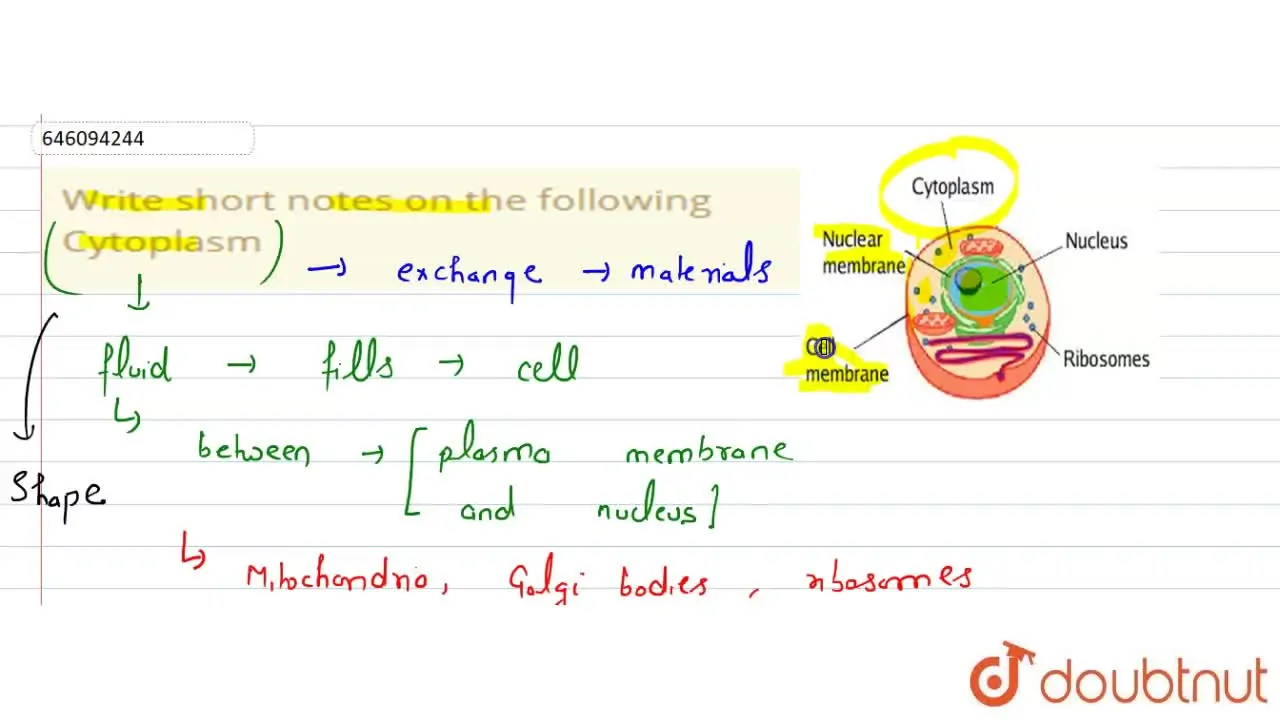 646094244
Write short notes on the following
Cytoplasm
→ exchange → materials
fluid → fills → cell
between → [plasma membrane
and nucleus]
Shape
Mitochondria, Golgi bodies, ribosomes
Cytoplasm
Nuclear
membrane
Nucleus
membrane
Ribosomes
doubtnut